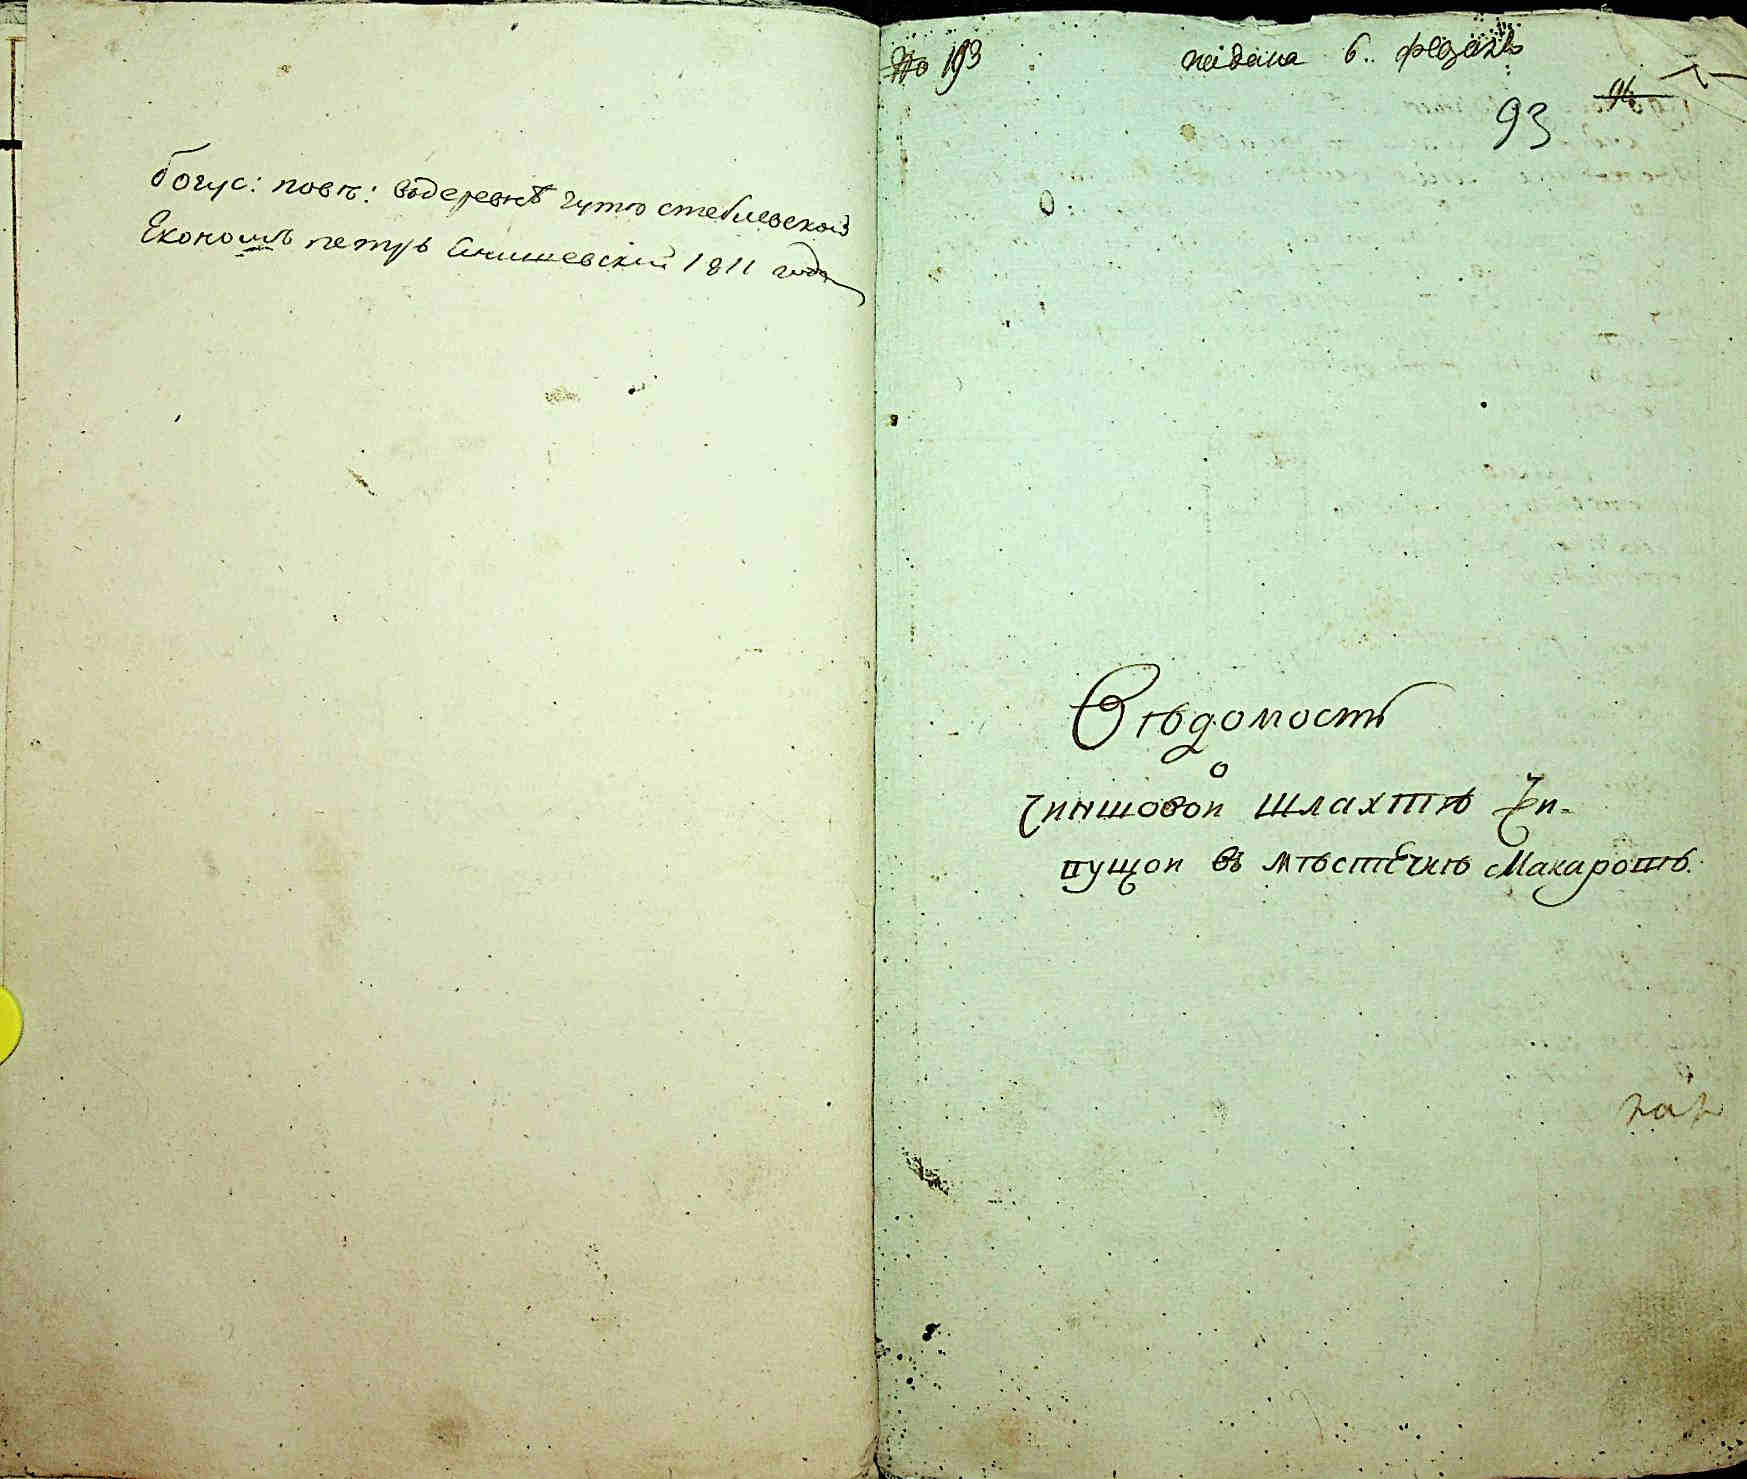 богус: повѣ: водеревнѣ гутѣ стеблевской
Економъ петръ 1811 года
No 193
падана 6.. февраля
96
93
Вѣдомость
о
чиншовои шлахтѣ Жи-
вущои въ мѣстечкѣ Макаровѣ.